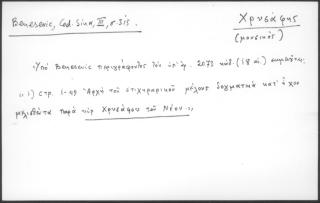 Benesevic, Cod. Sina, III, σ. 315
Χρυσάφης
(μουσικός)
Ὑπό Benesevic περιγράφοντος τόν ὑπ' ἀρ. 2073 κώδ. (18 αἰ.)
1) στρ. 1-49 Ἀρχή τοῦ στιχηραρικοῦ μέλους δογματικά κατ' ἦχον
μελισθέντα παρά κυρ Χρυσάφου τοῦ Νέου